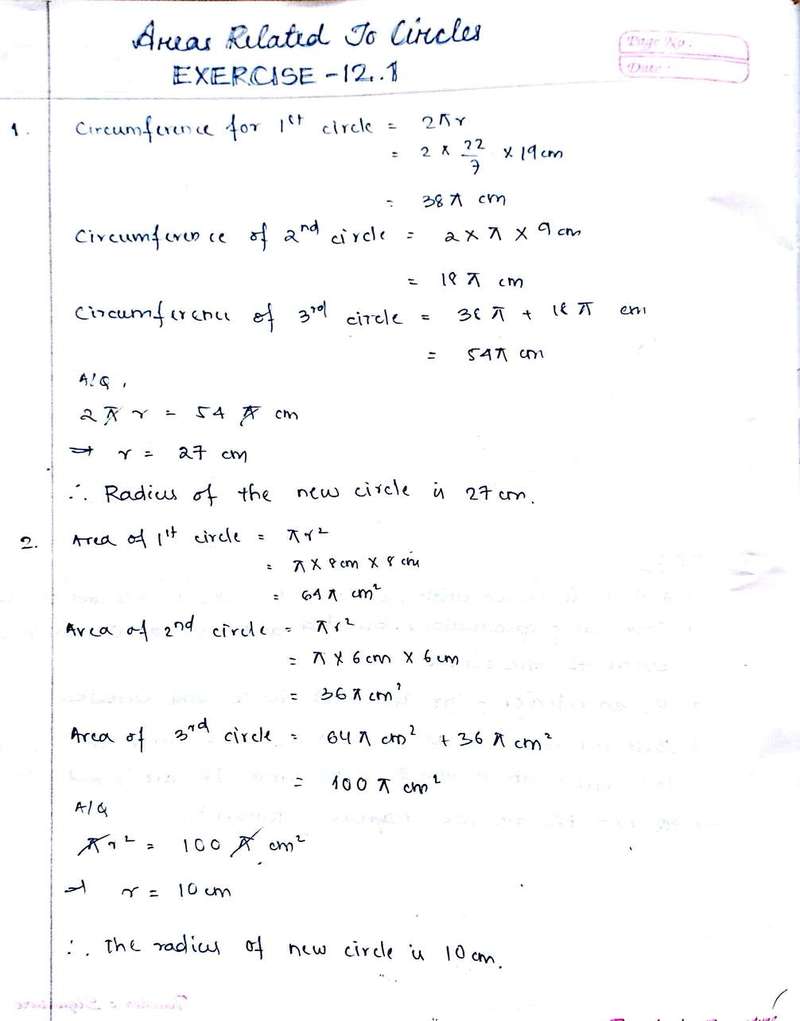 Areas Related To Circles
EXERCISE - 12.1
Page No.
Date:
1. Circumference for 1st circle = 2πr
= 2 × 22/7 × 19 cm
= 38π cm
Circumference of 2nd circle = 2 × π × 9 cm
= 18π cm
Circumference of 3rd circle = 38π + 18π cm
= 54π cm
A/Q,
2πr = 54π cm
⇒ r = 27 cm
∴ Radius of the new circle is 27 cm.
2. Area of 1st circle = πr²
= π × 8cm × 8 cm
= 64π cm²
Area of 2nd circle = πr²
= π × 6cm × 6cm
= 36π cm²
Area of 3rd circle = 64π cm² + 36π cm²
= 100π cm²
A/Q
πr² = 100π cm²
⇒ r = 10 cm
∴ The radius of new circle is 10 cm.